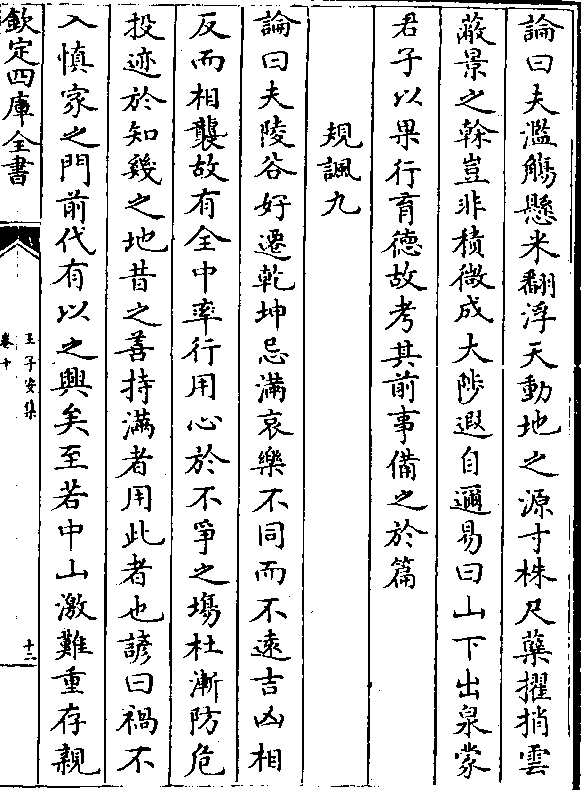 論曰夫濫觴懸米翻浮天動地之源寸株尺蘖擢捎雲
蔽景之榦豈非積微成大陟遐自邇易曰山下出泉蒙
君子以果行育德故考其前事備之於篇
規諷九
論曰夫陵谷好遷乾坤忌滿哀樂不同而不遠吉凶相
反而相襲故有全中率行用心於不爭之場杜漸防危
投迹於知幾之地昔之善持滿者用此者也諺曰禍不
入慎家之門前代有以之興矣至若中山激難重存親
欽定四庫全書
王子安集
卷十
十二